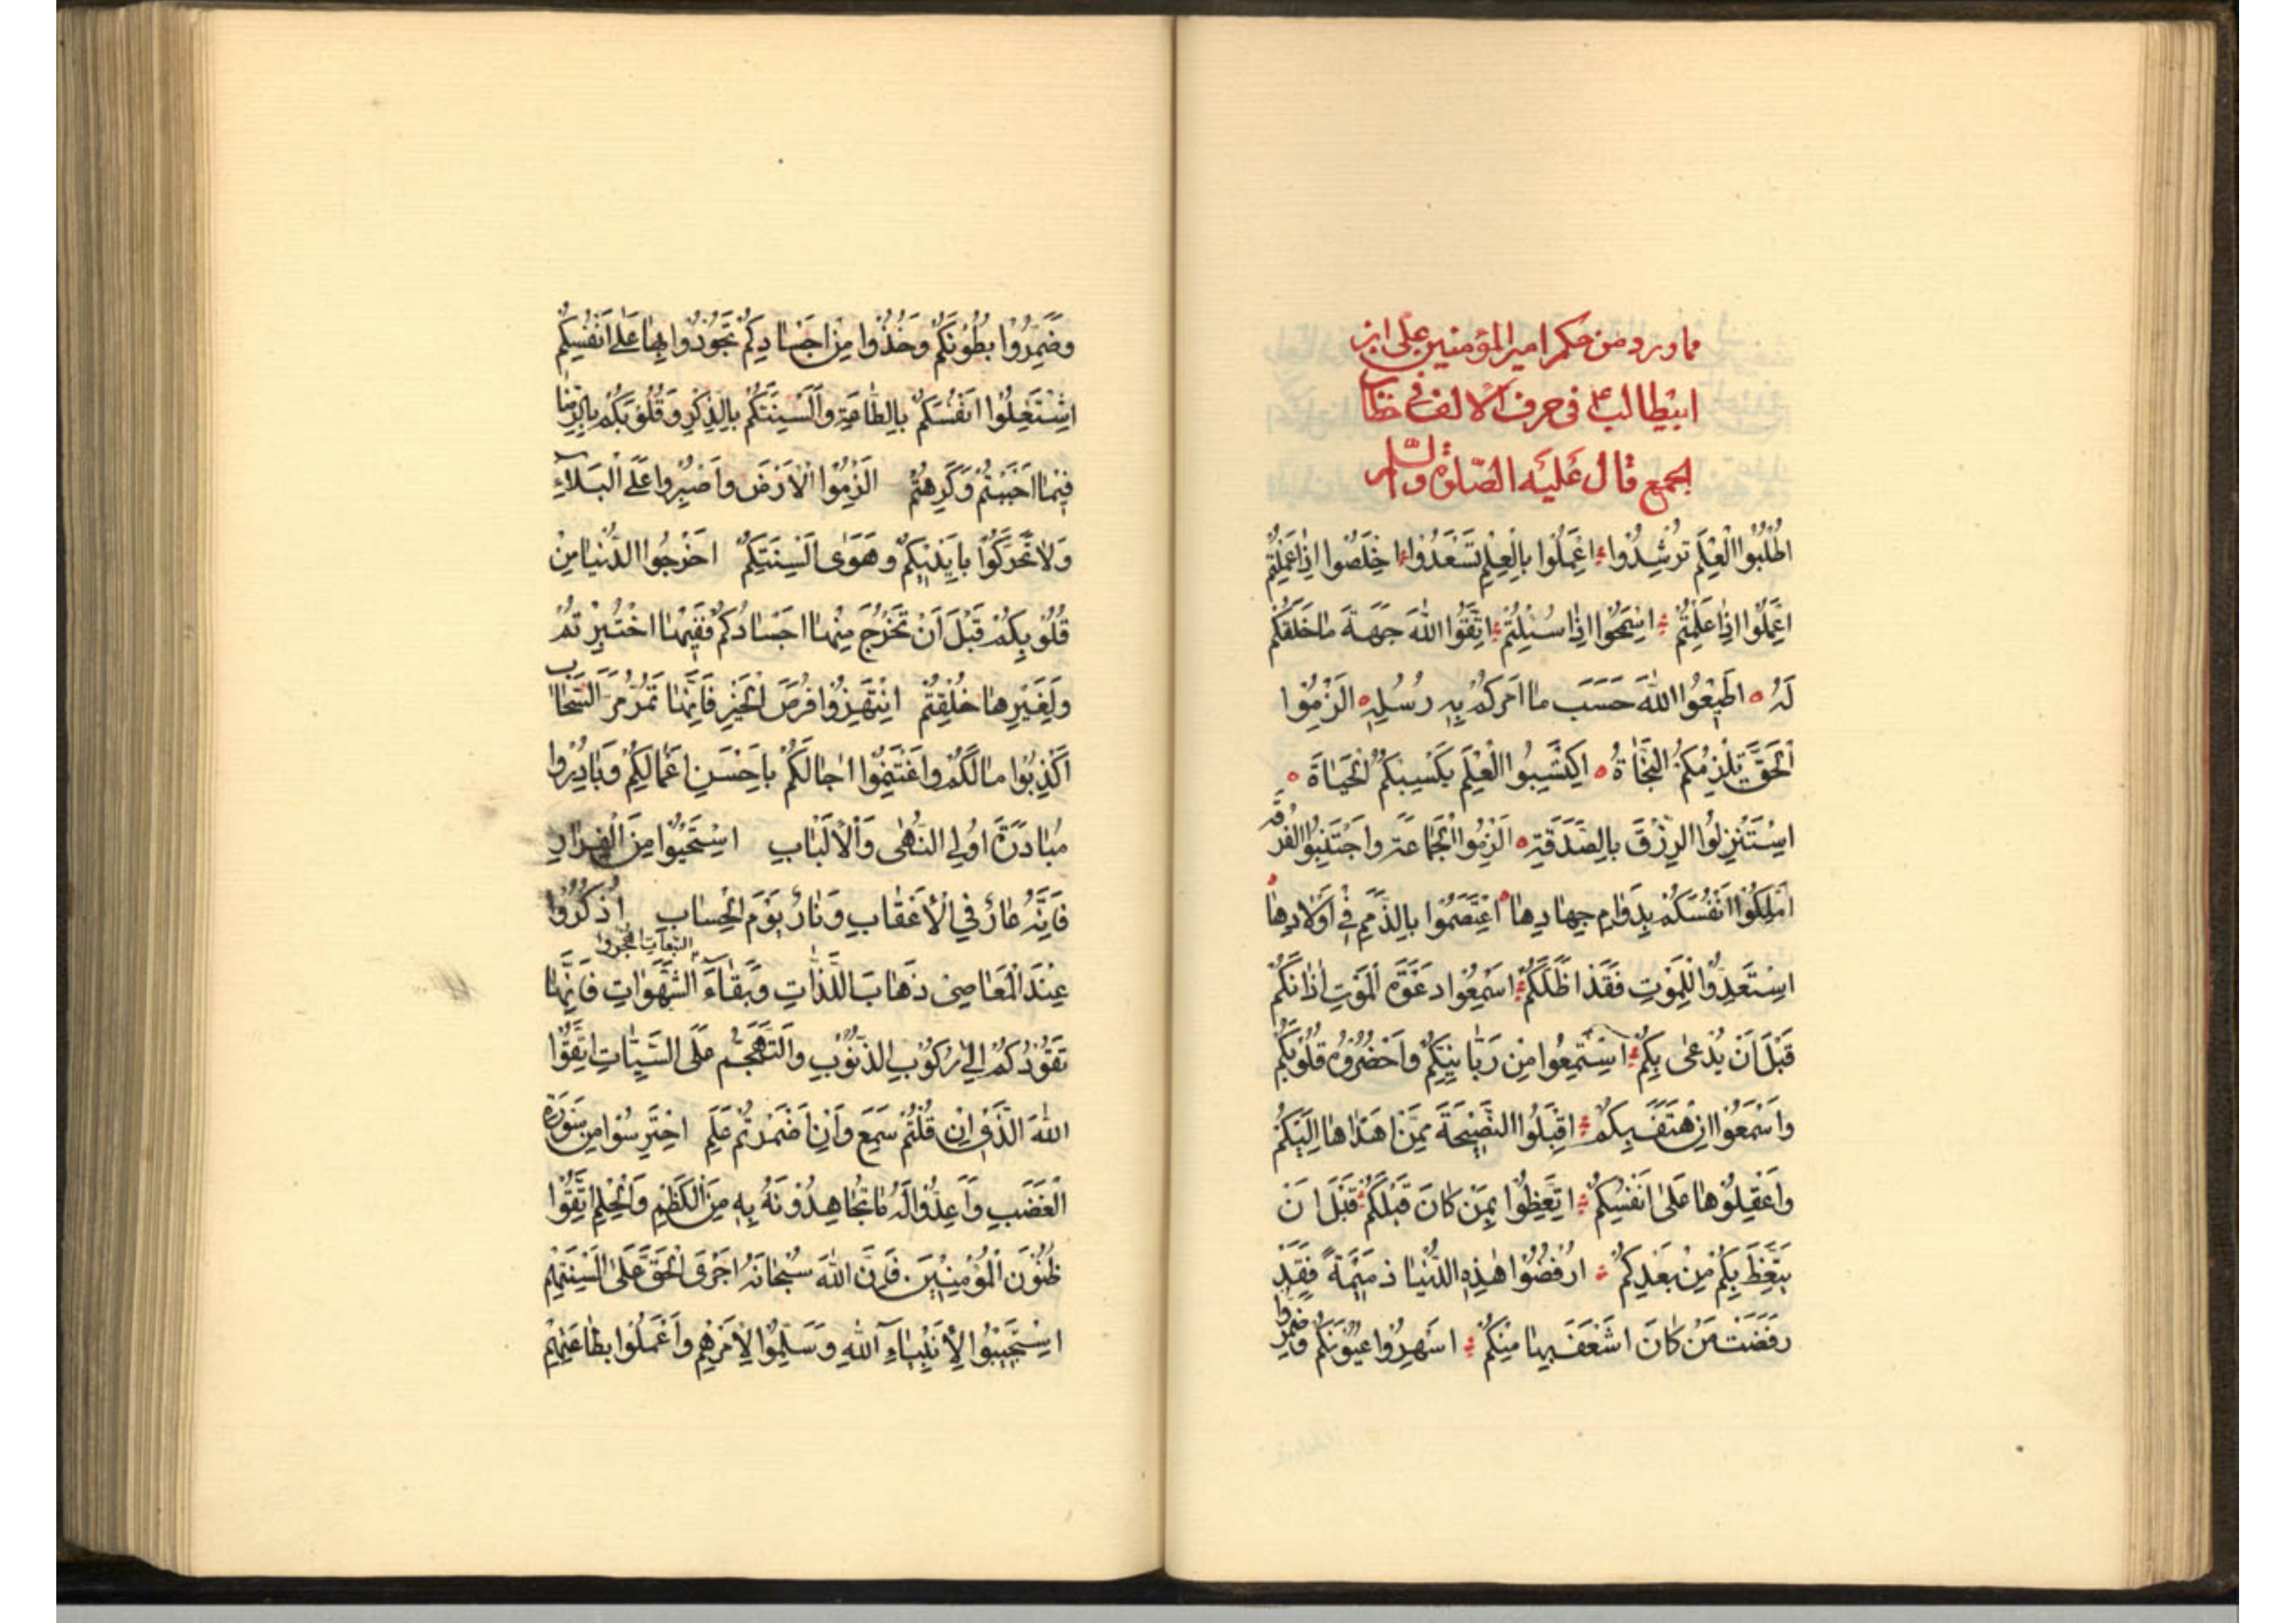 مما ورد من حكم امير المؤمنين على ابن
ابيطالب ع فى حرف الالف فى خطاب
الجمع قال عليه الصّلوة والسّلم
اُطْلُبُوا الْعِلْمَ تَرْشُدُوا اِعْمَلُوا بِالْعِلْمِ تَسْعَدُوا اخْلَصُوا اِذٰا عَمِلْتُمْ
اِعْمَلُوا اِذٰا عَلِمْتُمْ اسْمَحُوا اِذٰا سُئِلْتُمْ اِتَّقُوا اللهَ جِهَةَ مٰا خَلَقَكُمْ
لَهُ اَطِيْعُوا اللهَ حَسَبَ ما اَمَرَكُمْ بِهِ رُسُلِهِ الْزَمُوا
الْحَقَّ تَلْزَمُكُمُ النَّجٰاةُ اِكْتَسِبُوا الْعِلْمَ يَكْسِبْكُمُ الْحَيٰاةَ
اِسْتَنْزِلُوا الرِّزْقَ بِالصَّدَقَةِ اَلْزِمُوا الْجَمٰاعَةَ واجْتَنِبُوا الفرقة
اَمْلِكُوْا اَنْفُسَكُمْ بِدَوٰامِ جِهٰادِهٰا اعْتَصِمُوا بِالذِّمَمِ فِيْ اَوْلٰادِهٰا
اِسْتَعِدُّوا لِلْمَوْتِ فَقَدْ اَظَلَّكُمْ اسْمِعُوْا دَعْوَةَ الْمَوْتِ اٰذٰانَكُمْ
قَبْلَ اَنْ يُدْعٰى بِكُمْ اِسْتَمِعُوا مِنْ رَبّٰانِيِّكُمْ وَاَحْضُرُوْهُ قُلُوْبَكُمْ
وَاسْمَعُوْا اِنْ هَتَفَ بِكُمْ اِقْبَلُوا النَّصِيْحَةَ مِمَّنْ اَهْدٰاهٰا اِلَيْكُمْ
وَاعْقِلُوْهٰا عَلٰى اَنْفُسِكُمْ اتَّعِظُوْا بِمَنْ كٰانَ قَبْلَكُمْ قَبْلَ اَنْ
يَتَّعِظَ بِكُمْ مِنْ بَعْدِكُمْ ارْفُضُوْا هٰذِهِ الدُّنْيٰا ذَمِيْمَةً فَقَدْ
رَفَضَتْ مَنْ كٰانَ اَشْعَفَ بِهٰا مِنْكُمْ اَسْهِرُوْا عُيُوْنَكُمْ وضمروا
وضَمِّرُوْا بُطُوْنَكُمْ وَخُذُوا مِنْ اَجْسٰادِكُمْ تَجُوْدُوا بِهٰا عَلٰى اَنْفُسِكُمْ
اِشْتَغِلُوْا اَنْفُسَكُمْ بِالطّٰاعَةِ وَاَلْسِنَتَكُمْ بِالذِّكْرِ وَقُلُوْبَكُمْ بِالرِّضٰا
فِيْمٰا اَحْبَبْتُمْ وَكَرِهْتُمْ الْزَمُوْا الْاَرْضَ وَاصْبِرُوا عَلَى الْبَلآءِ
وَلاٰ تَحَرَّكُوْا بِاَيْدِيْكُمْ وَهَوٰى اَلْسِنَتِكُمْ اخْرِجُوا الدُّنْيٰا مِنْ
قُلُوْبِكُمْ قَبْلَ اَنْ تَخْرُجَ مِنْهٰا اَجْسٰادُكُمْ فَفِيْهٰا اخْتُبِرْتُمْ
وَلِغَيْرِهٰا خُلِقْتُمْ اِنْتَهِزُوْا فُرَصَ الْخَيْرِ فَاِنَّهٰا تَمُرُّ مَرَّ السَّحٰاب
اَكْذِبُوْا اٰمٰالَكُمْ وَاغْتَنِمُوْا اٰجٰالَكُمْ بِاَحْسَنِ اَعْمٰالِكُمْ وَبٰادِرُوْا
مُبٰادَرَةَ اُوْلِي النُّهٰى وَالْاَلْبٰابِ اسْتَحْيُوْا مِنَ الْفِرٰارِ
فَاِنَّهُ عٰارٌ فِي الْاَعْقٰابِ وَنٰارٌ يَوْمَ الْحِسٰابِ اُذْكُرُوْا
عِنْدَ الْمَعٰاصِيْ ذَهٰابَ اللَّذّٰاتِ وَبَقٰآءَ التبعات اهجروا الشَّهَوٰاتِ فَاِنَّهٰا
تَقُوْدُكُمْ اِلٰى رُكُوْبِ الذُّنُوْبِ وَالتَّهَجُّمِ عَلَى السَّيِّئٰاتِ اتَّقُوْا
اللهَ الَّذِيْ اِنْ قُلْتُمْ سَمِعَ وَاِنْ اَضْمَرْتُمْ عَلِمَ احْتَرِسُوْا مِنْ سَوْرَةِ
الْغَضَبِ وَاَعِدُّوْا لَهُ مٰا تُجٰاهِدُوْنَهُ بِهِ مِنَ الْكَظْمِ وَالْحِلْمِ اتَّقُوْا
ظُنُوْنَ الْمُؤْمِنِيْنَ فَاِنَّ اللهَ سُبْحٰانَهُ اَجْرَى الْحَقَّ عَلٰى اَلْسِنَتِهِمْ
اِسْتَجِيْبُوْا لِاَنْبِيٰآءِ اللهِ وَسَلِّمُوْا لِاَمْرِهِمْ وَاعْمَلُوْا بِطٰاعَتِهِمْ